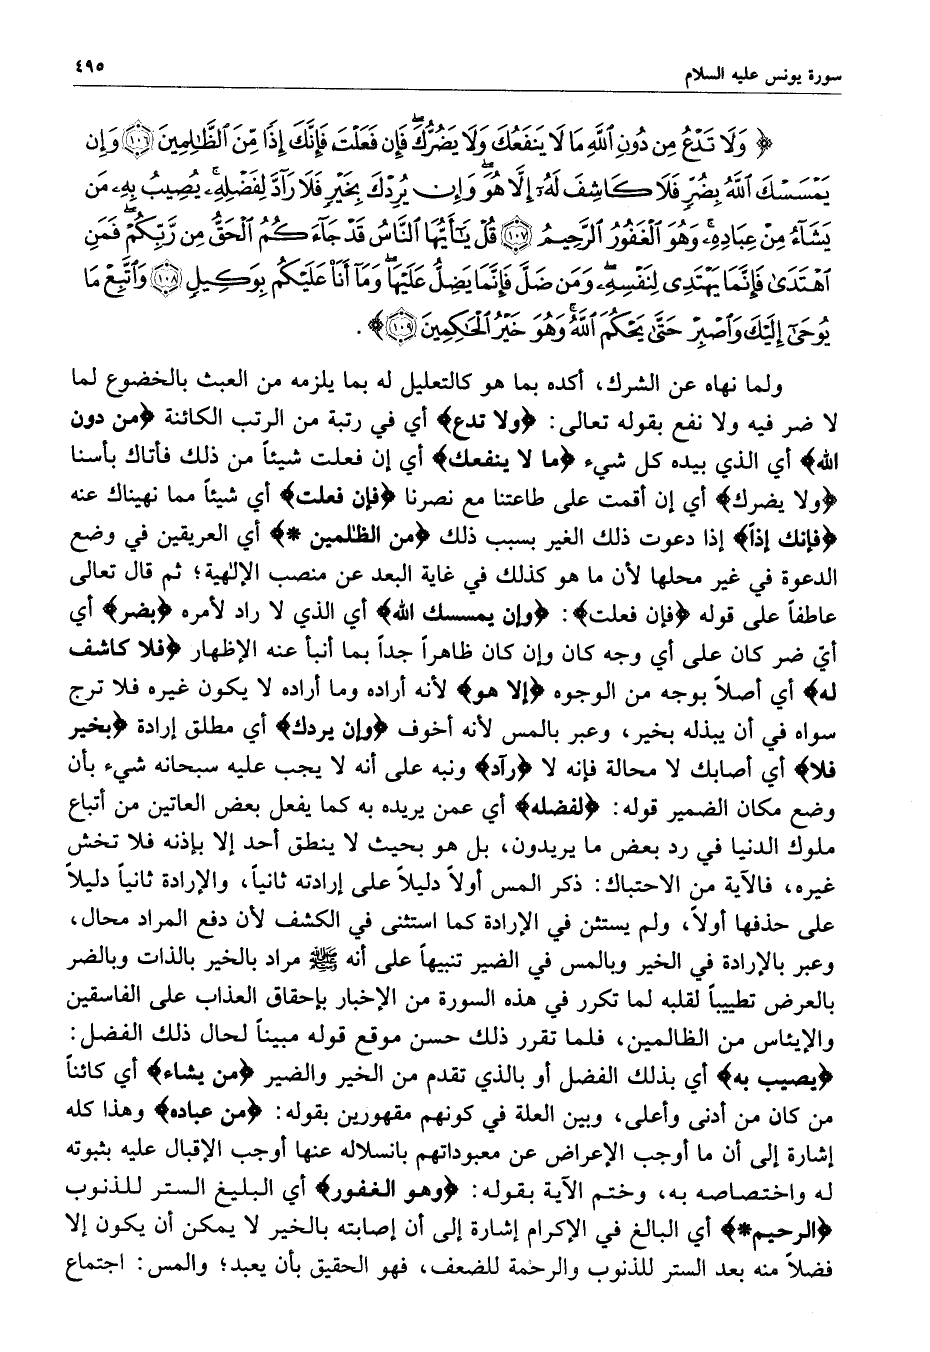 سورة يونس عليه السلام ٤٩٥
﴿ وَلَا تَدْعُ مِن دُونِ ٱللَّهِ مَا لَا يَنفَعُكَ وَلَا يَضُرُّكَۖ فَإِن فَعَلْتَ فَإِنَّكَ إِذًا مِّنَ ٱلظَّٰلِمِينَ ۝١٠٦ وَإِن
يَمْسَسْكَ ٱللَّهُ بِضُرٍّ فَلَا كَاشِفَ لَهُۥٓ إِلَّا هُوَۖ وَإِن يُرِدْكَ بِخَيْرٍ فَلَا رَآدَّ لِفَضْلِهِۦۚ يُصِيبُ بِهِۦ مَن
يَشَآءُ مِنْ عِبَادِهِۦۚ وَهُوَ ٱلْغَفُورُ ٱلرَّحِيمُ ۝١٠٧ قُلْ يَٰٓأَيُّهَا ٱلنَّاسُ قَدْ جَآءَكُمُ ٱلْحَقُّ مِن رَّبِّكُمْۖ فَمَنِ
ٱهْتَدَىٰ فَإِنَّمَا يَهْتَدِى لِنَفْسِهِۦۖ وَمَن ضَلَّ فَإِنَّمَا يَضِلُّ عَلَيْهَاۖ وَمَآ أَنَا۠ عَلَيْكُم بِوَكِيلٍ ۝١٠٨ وَٱتَّبِعْ مَا
يُوحَىٰٓ إِلَيْكَ وَٱصْبِرْ حَتَّىٰ يَحْكُمَ ٱللَّهُۚ وَهُوَ خَيْرُ ٱلْحَٰكِمِينَ ۝١٠٩ ﴾ .
ولما نهاه عن الشرك، أكده بما هو كالتعليل له بما يلزمه من العبث بالخضوع لما
لا ضر فيه ولا نفع بقوله تعالى: ﴿ولا تدع﴾ أي في رتبة من الرتب الكائنة ﴿من دون
الله﴾ أي الذي بيده كل شيء ﴿ما لا ينفعك﴾ أي إن فعلت شيئاً من ذلك فأتاك بأسنا
﴿ولا يضرك﴾ أي إن أقمت على طاعتنا مع نصرنا ﴿فإن فعلت﴾ أي شيئاً مما نهيناك عنه
﴿فإنك إذاً﴾ إذا دعوت ذلك الغير بسبب ذلك ﴿من الظٰلمين *﴾ أي العريقين في وضع
الدعوة في غير محلها لأن ما هو كذلك في غاية البعد عن منصب الإلٰهية؛ ثم قال تعالى
عاطفاً على قوله ﴿فإن فعلت﴾: ﴿وإن يمسسك الله﴾ أي الذي لا راد لأمره ﴿بضر﴾ أي
أيّ ضر كان على أي وجه كان وإن كان ظاهراً جداً بما أنبأ عنه الإظهار ﴿فلا كاشف
له﴾ أي أصلاً بوجه من الوجوه ﴿إلا هو﴾ لأنه أراده وما أراده لا يكون غيره فلا ترج
سواه في أن يبذله بخير، وعبر بالمس لأنه أخوف ﴿وإن يردك﴾ أي مطلق إرادة ﴿بخير
فلا﴾ أي أصابك لا محالة فإنه لا ﴿رآد﴾ ونبه على أنه لا يجب عليه سبحانه شيء بأن
وضع مكان الضمير قوله: ﴿لفضله﴾ أي عمن يريده به كما يفعل بعض العاتين من أتباع
ملوك الدنيا في رد بعض ما يريدون، بل هو بحيث لا ينطق أحد إلا بإذنه فلا تخش
غيره، فالآية من الاحتباك: ذكر المس أولاً دليلاً على إرادته ثانياً، والإرادة ثانياً دليلاً
على حذفها أولاً، ولم يستثن في الإرادة كما استثنى في الكشف لأن دفع المراد محال،
وعبر بالإرادة في الخير وبالمس في الضير تنبيهاً على أنه ﷺ مراد بالخير بالذات وبالضر
بالعرض تطييباً لقلبه لما تكرر في هذه السورة من الإخبار بإحقاق العذاب على الفاسقين
والإيئاس من الظالمين، فلما تقرر ذلك حسن موقع قوله مبيناً لحال ذلك الفضل:
﴿يصيب به﴾ أي بذلك الفضل أو بالذي تقدم من الخير والضير ﴿من يشاء﴾ أي كائناً
من كان من أدنى وأعلى، وبين العلة في كونهم مقهورين بقوله: ﴿من عباده﴾ وهذا كله
إشارة إلى أن ما أوجب الإعراض عن معبوداتهم بانسلاله عنها أوجب الإقبال عليه بثبوته
له واختصاصه به، وختم الآية بقوله: ﴿وهو الغفور﴾ أي البليغ الستر للذنوب
﴿الرحيم*﴾ أي البالغ في الإكرام إشارة إلى أن إصابته بالخير لا يمكن أن يكون إلا
فضلاً منه بعد الستر للذنوب والرحمة للضعف، فهو الحقيق بأن يعبد؛ والمس: اجتماع